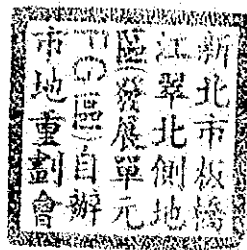 新北市板橋
江翠北側地
區(發展單元
區)自辦
市地重劃會